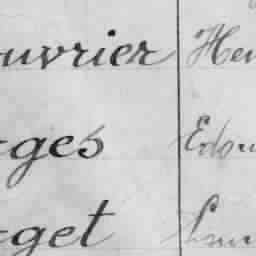 ouvrier Hen
ges Edou
get